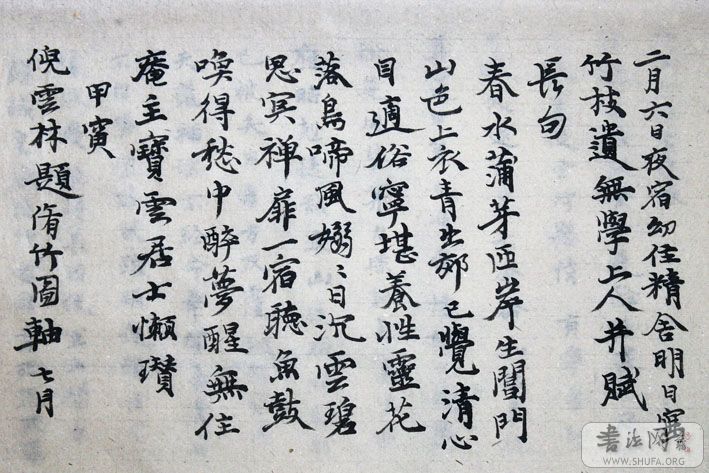 二月六日夜宿幻住精舍明日寫
竹枝遺無學上人并賦
長句
春水蒲芽匝岸生閶門
山色上衣青出郊已覺清心
目適俗寧堪養性靈花
落鳥啼風嫋〻日沉雲碧
思冥禅扉一宿聽魚鼓
喚得愁中醉夢醒無住
庵主寶雲居士懶瓚
甲寅
倪雲林題脩竹圖軸七月
書法网
WWW.SHUFA.ORG